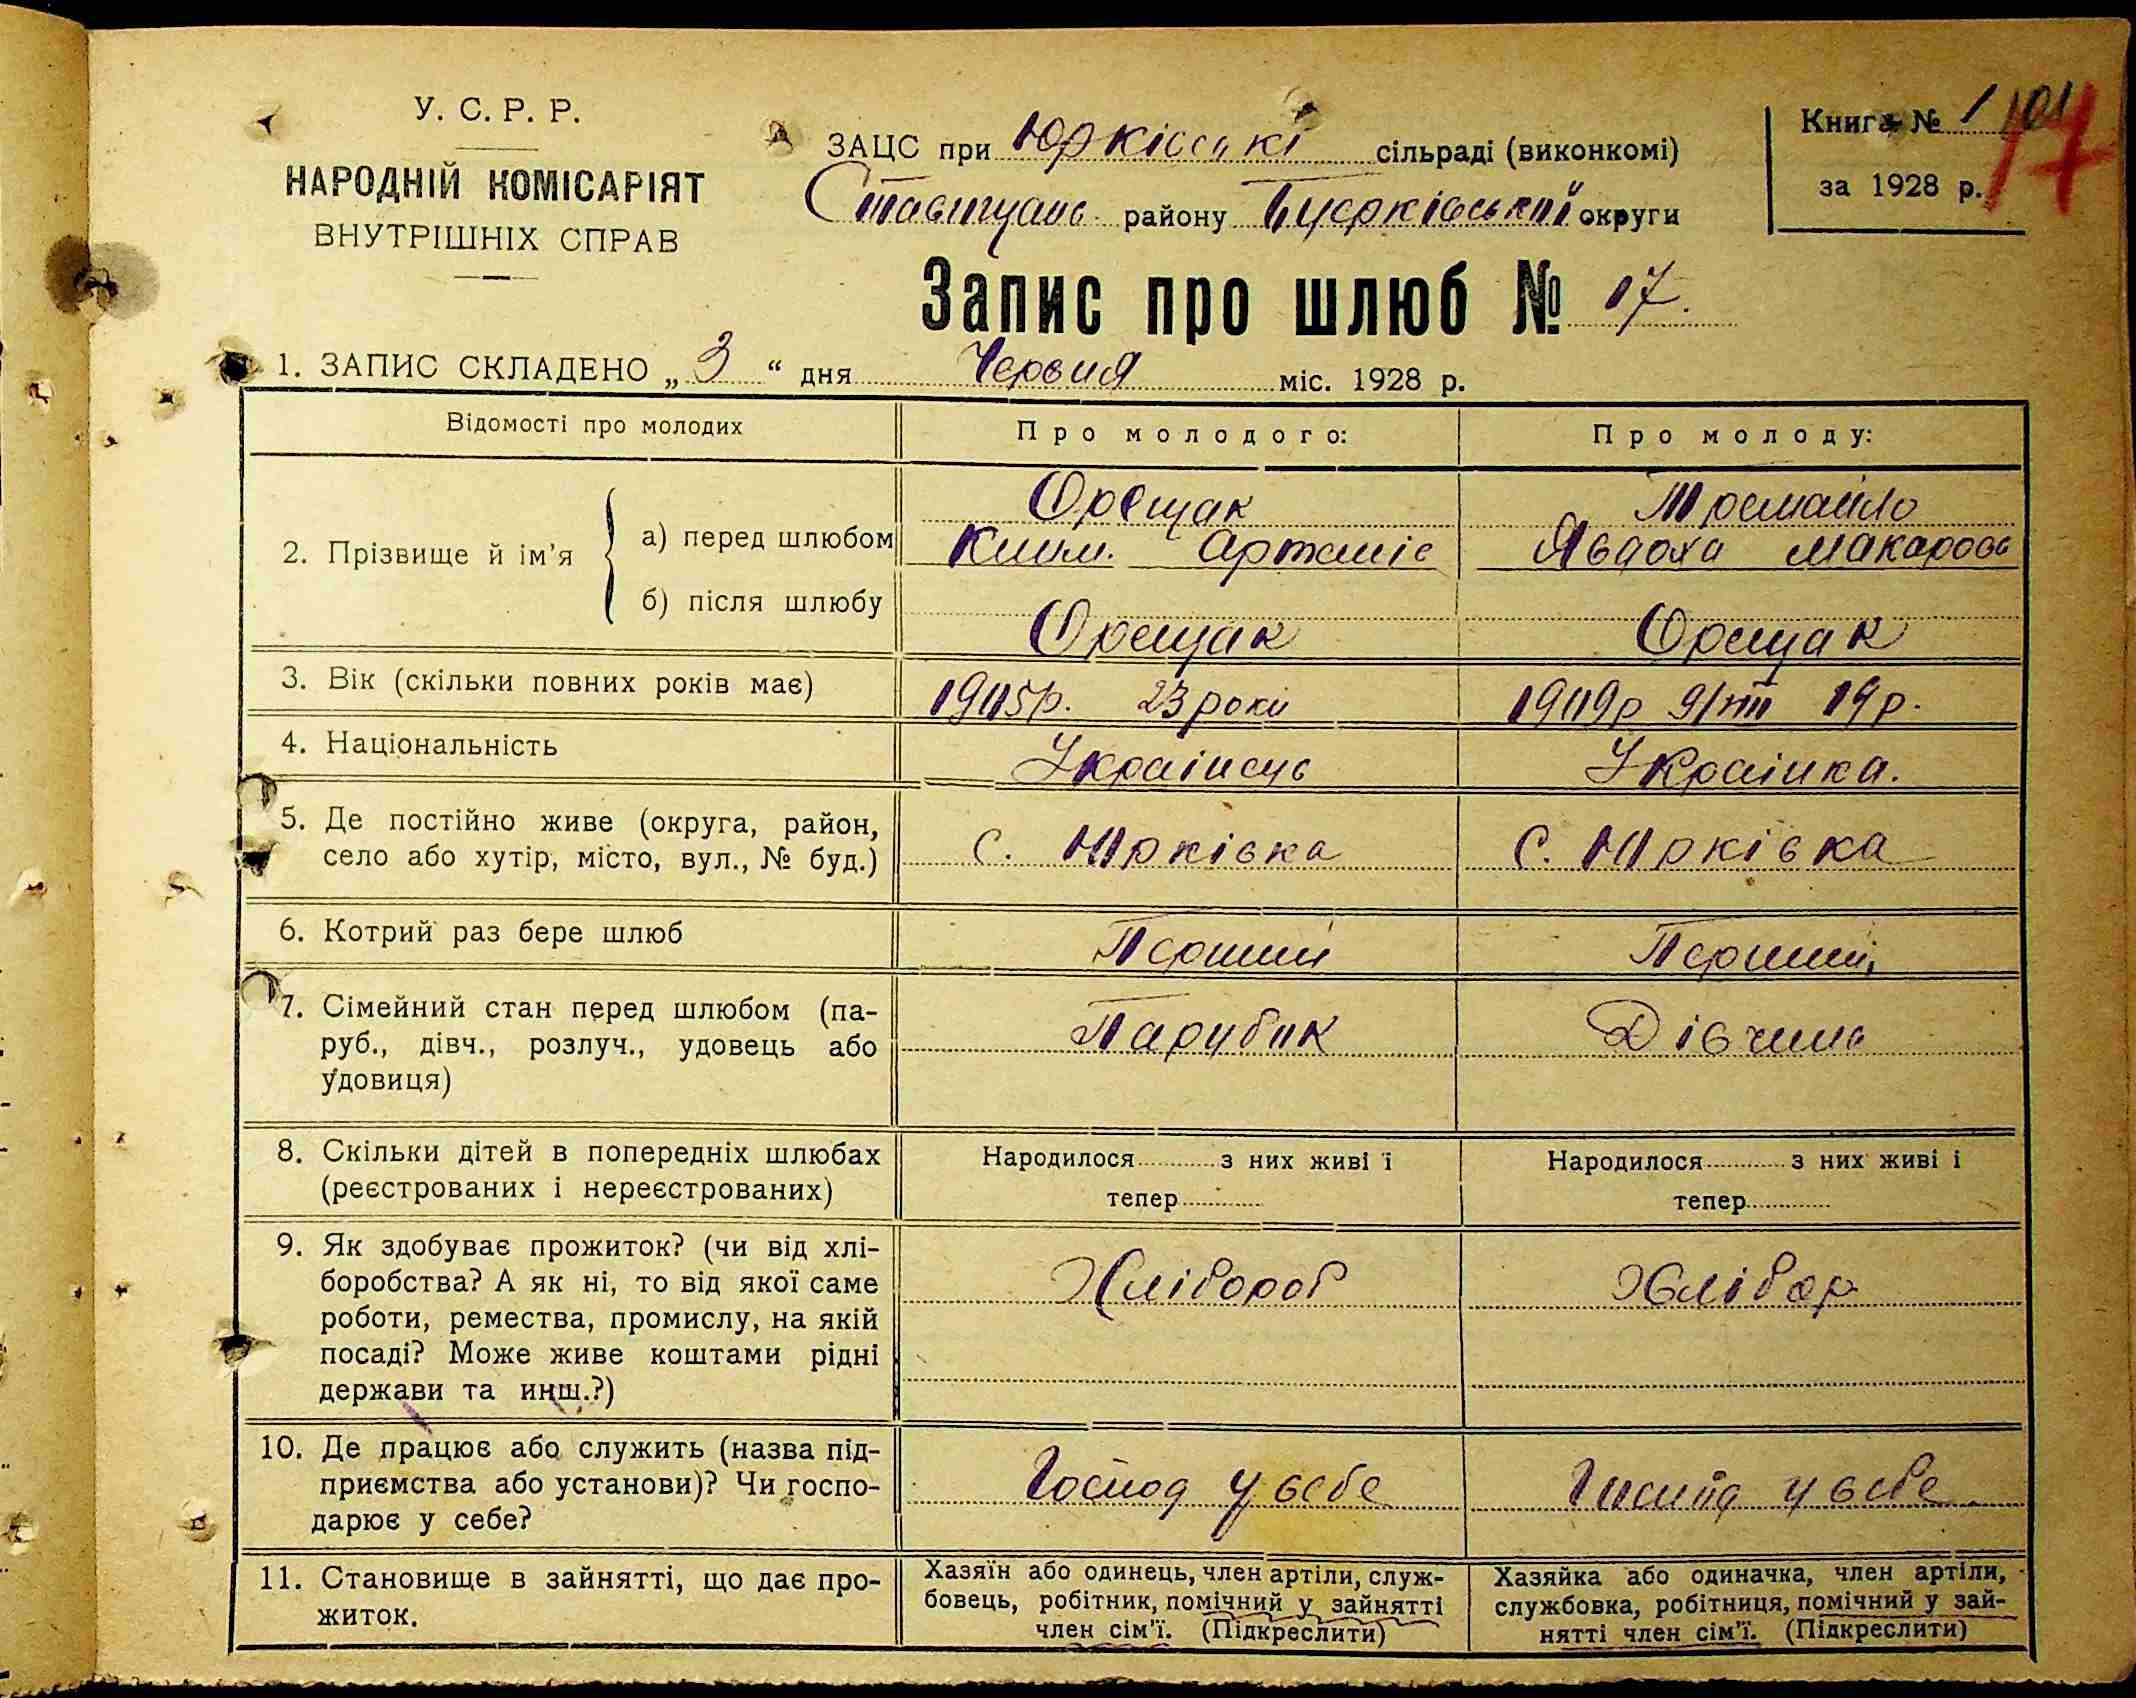 У. С. Р. Р.
НАРОДНІЙ КОМІСАРІЯТ
ВНУТРІШНІХ СПРАВ
ЗАЦС при Юрківські сільраді (виконкомі)
Ставищань району Бцерківський округи
Книга № 1
за 1928 р.
17
Запис про шлюб № 17.
1. ЗАПИС СКЛАДЕНО „ 3 “ дня Червня міс. 1928 р.
Відомості про молодих
Про молодого:
Про молоду:
2. Прізвище й ім'я
а) перед шлюбом
Орещак
Клим. Артеміє
Тремайло
Явдоха Макаров
б) після шлюбу
Орещак
Орещак
3. Вік (скільки повних років має)
1905р. 23 роки
1909р 9/VIII 19 р.
4. Національність
Українець
Українка.
5. Де постійно живе (округа, район,
село або хутір, місто, вул., № буд.)
с. Юрківка
с. Юрківка
6. Котрий раз бере шлюб
Перший
Перший
7. Сімейний стан перед шлюбом (па-
руб., дівч., розлуч., удовець або
удовиця)
Парубок
Дівчина
8. Скільки дітей в попередніх шлюбах
(реєстрованих і нереєстрованих)
Народилося з них живі і
тепер
Народилося з них живі і
тепер
9. Як здобуває прожиток? (чи від хлі-
боробства? А як ні, то від якої саме
роботи, ремества, промислу, на якій
посаді? Може живе коштами рідні
держави та инш.?)
Хлібороб
Хлібор
10. Де працює або служить (назва під-
приємства або установи)? Чи госпо-
дарює у себе?
Господ у себе
Господ у себе
11. Становище в зайнятті, що дає про-
житок.
Хазяїн або одинець, член артіли, служ-
бовець, робітник, помічний у зайнятті
член сім'ї. (Підкреслити)
Хазяйка або одиначка, член артіли,
службовка, робітниця, помічний у зай-
нятті член сім'ї. (Підкреслити)